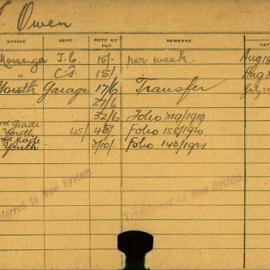 Owen
OFFICE DEPT. RATE OF PAY REMARKS.
J.C. 15/- per week. Aug 18
" C.S. 15/- Aug
Youth Garage 17/6 Transfer July
27/6
32/6 Folio 319/1919
3rd Grade
Youth 45/- 48/- Folio 158/1920
Grade
Youth Folio 148/1921
Transferred to New System
Transferred to New System